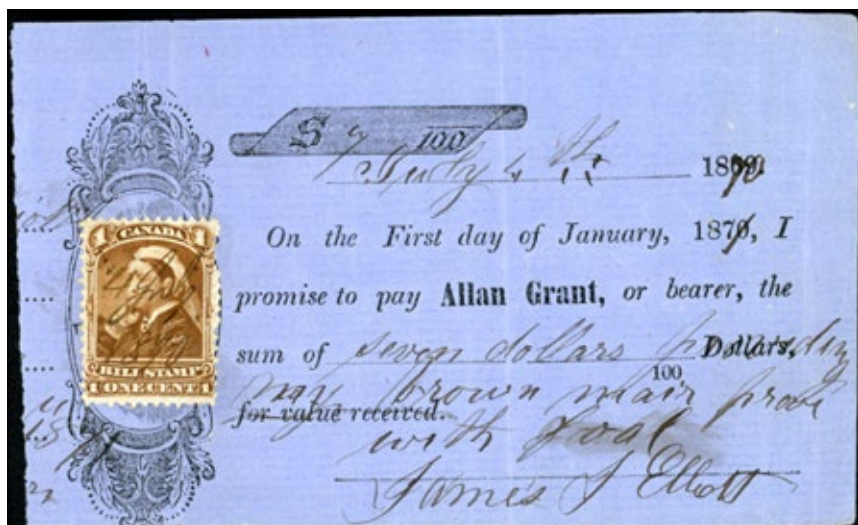 $ 7 100
July 4th 1870
On the First day of January, 1871, I
promise to pay Allan Grant, or bearer, the
sum of seven dollars Dollars,
100
my brown mair prove
for value received.
with foal
James S Elliott
1 CANADA 1
4 July
1870
BILL STAMP
1 ONE CENT 1